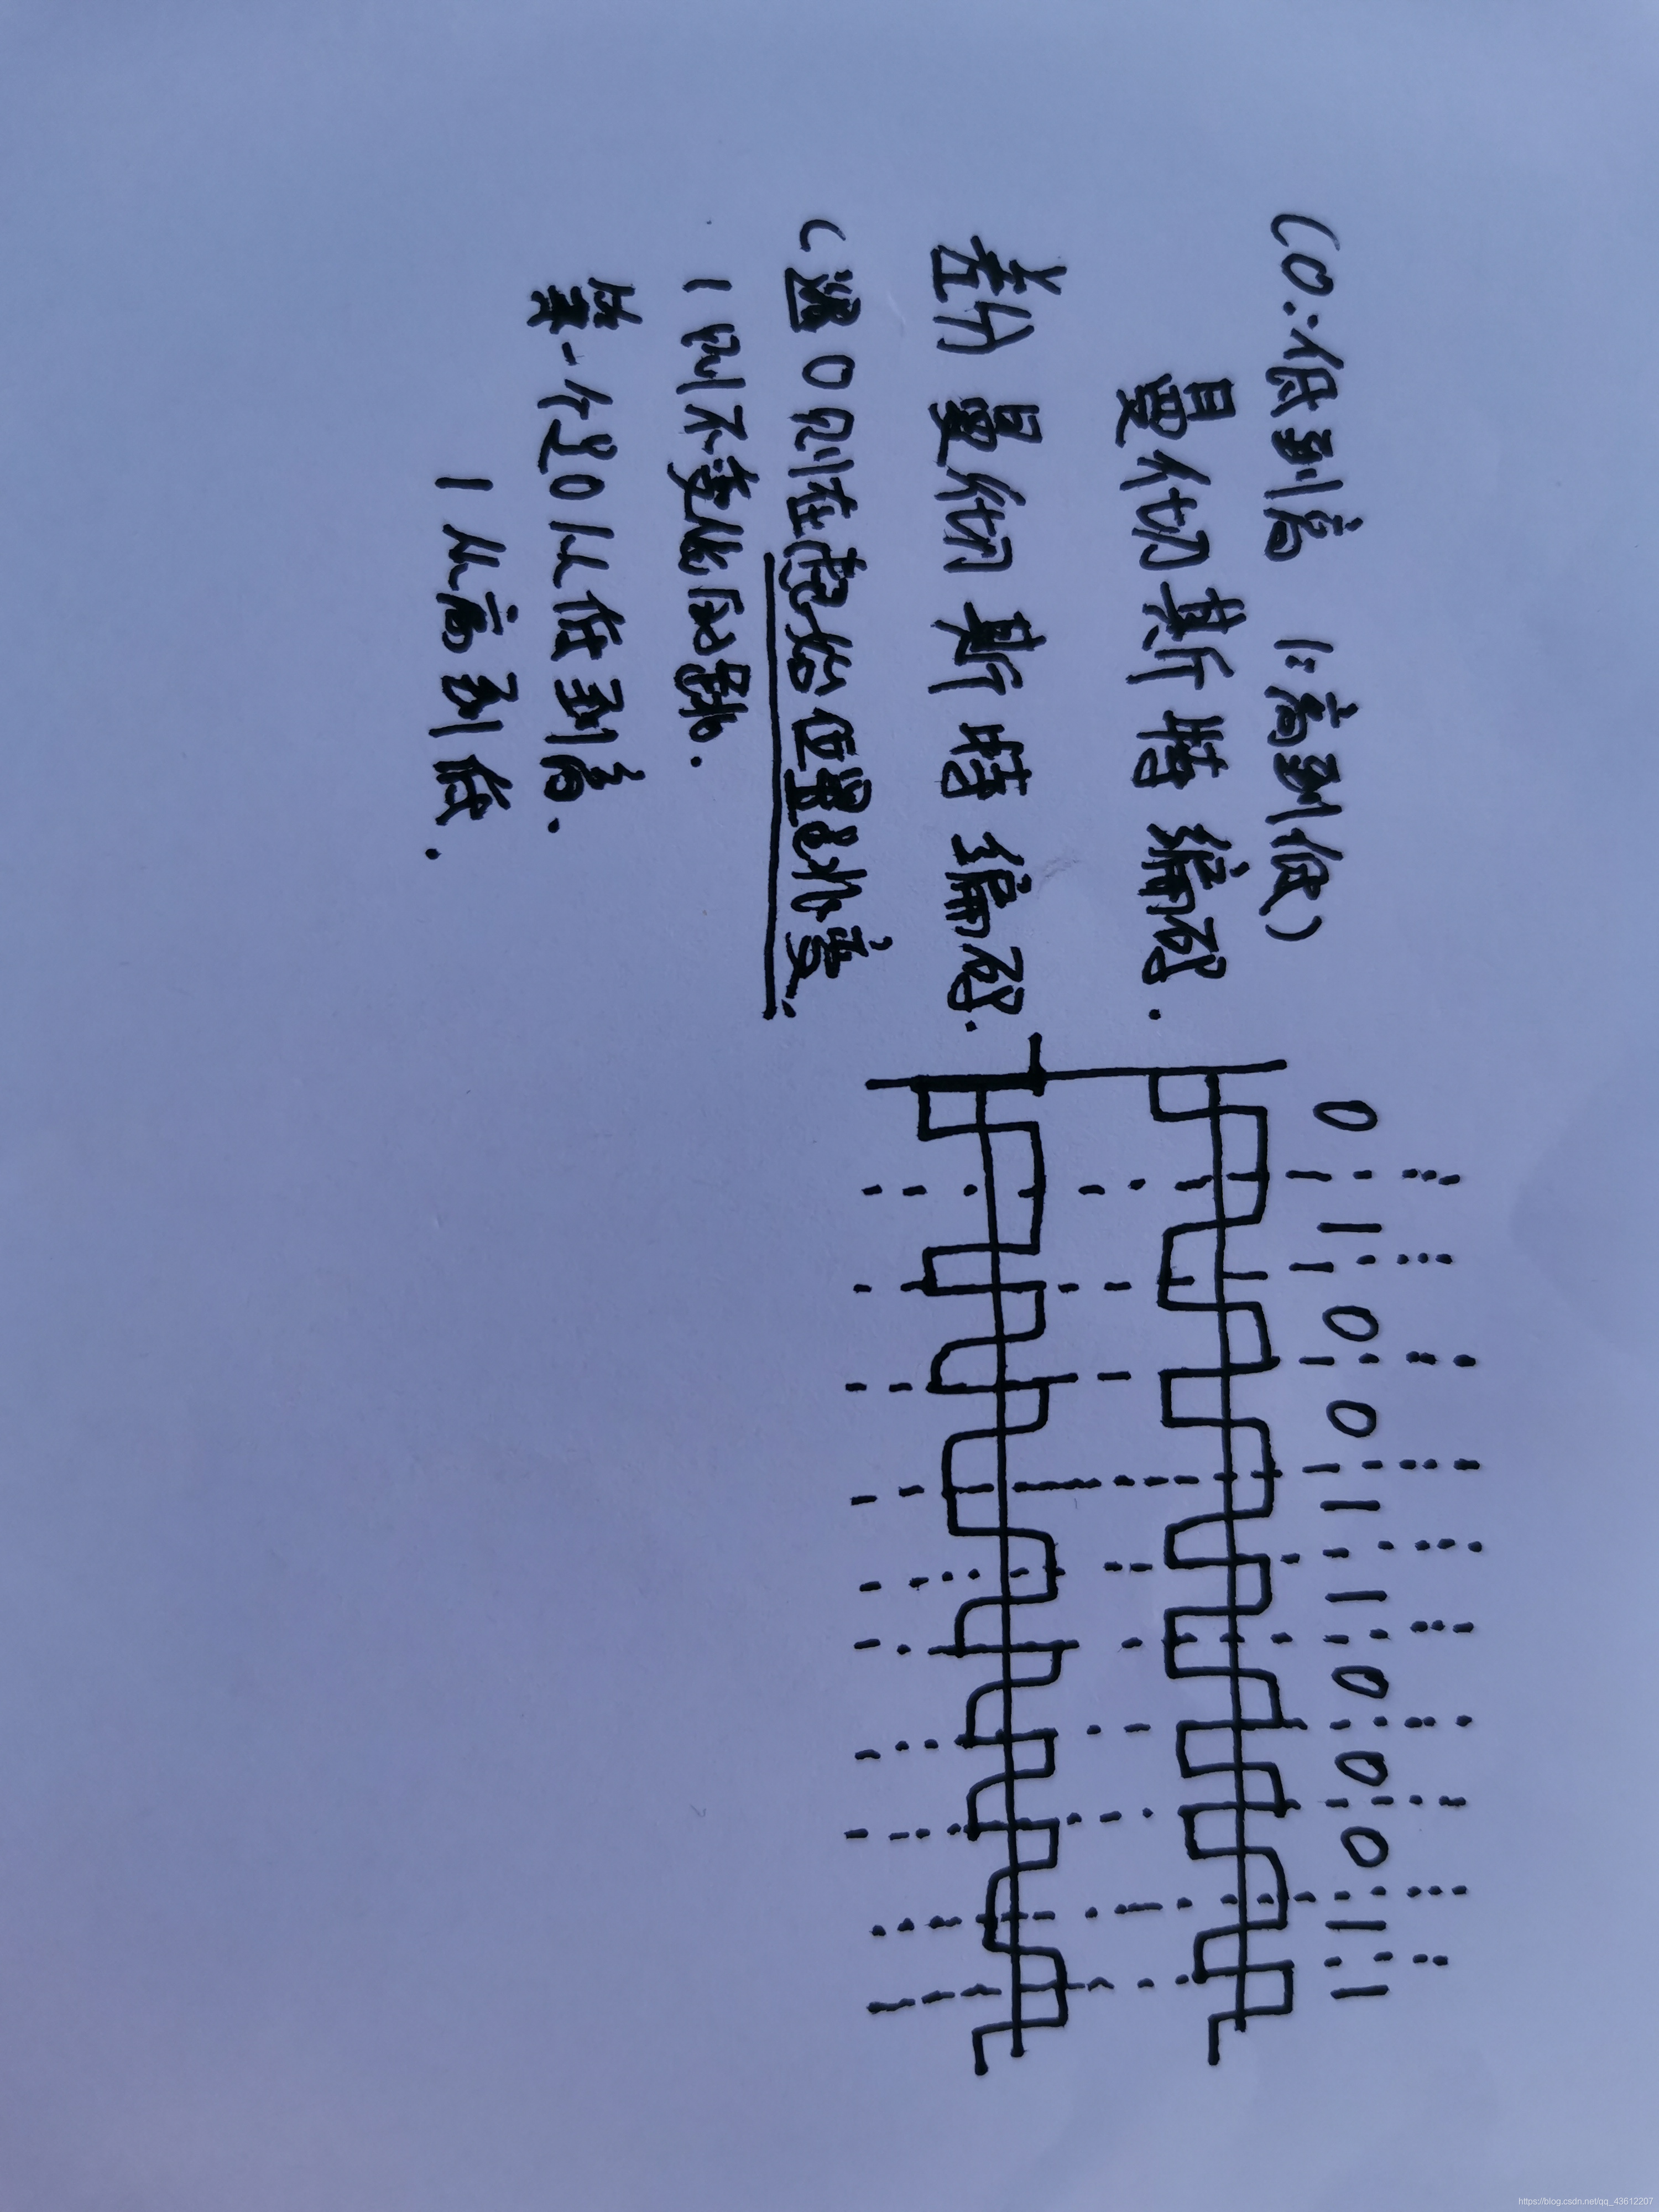 0 1 0 0 1 1 0 0 0 1 1
(0:低到高 1:高到低)
曼彻斯特编码.
差分曼彻斯特编码.
(遇0则在起始位置跳变.
1则不变化 跳.
第一个是0从低到高.
1从高到低.
https://blog.csdn.net/qq_43612207